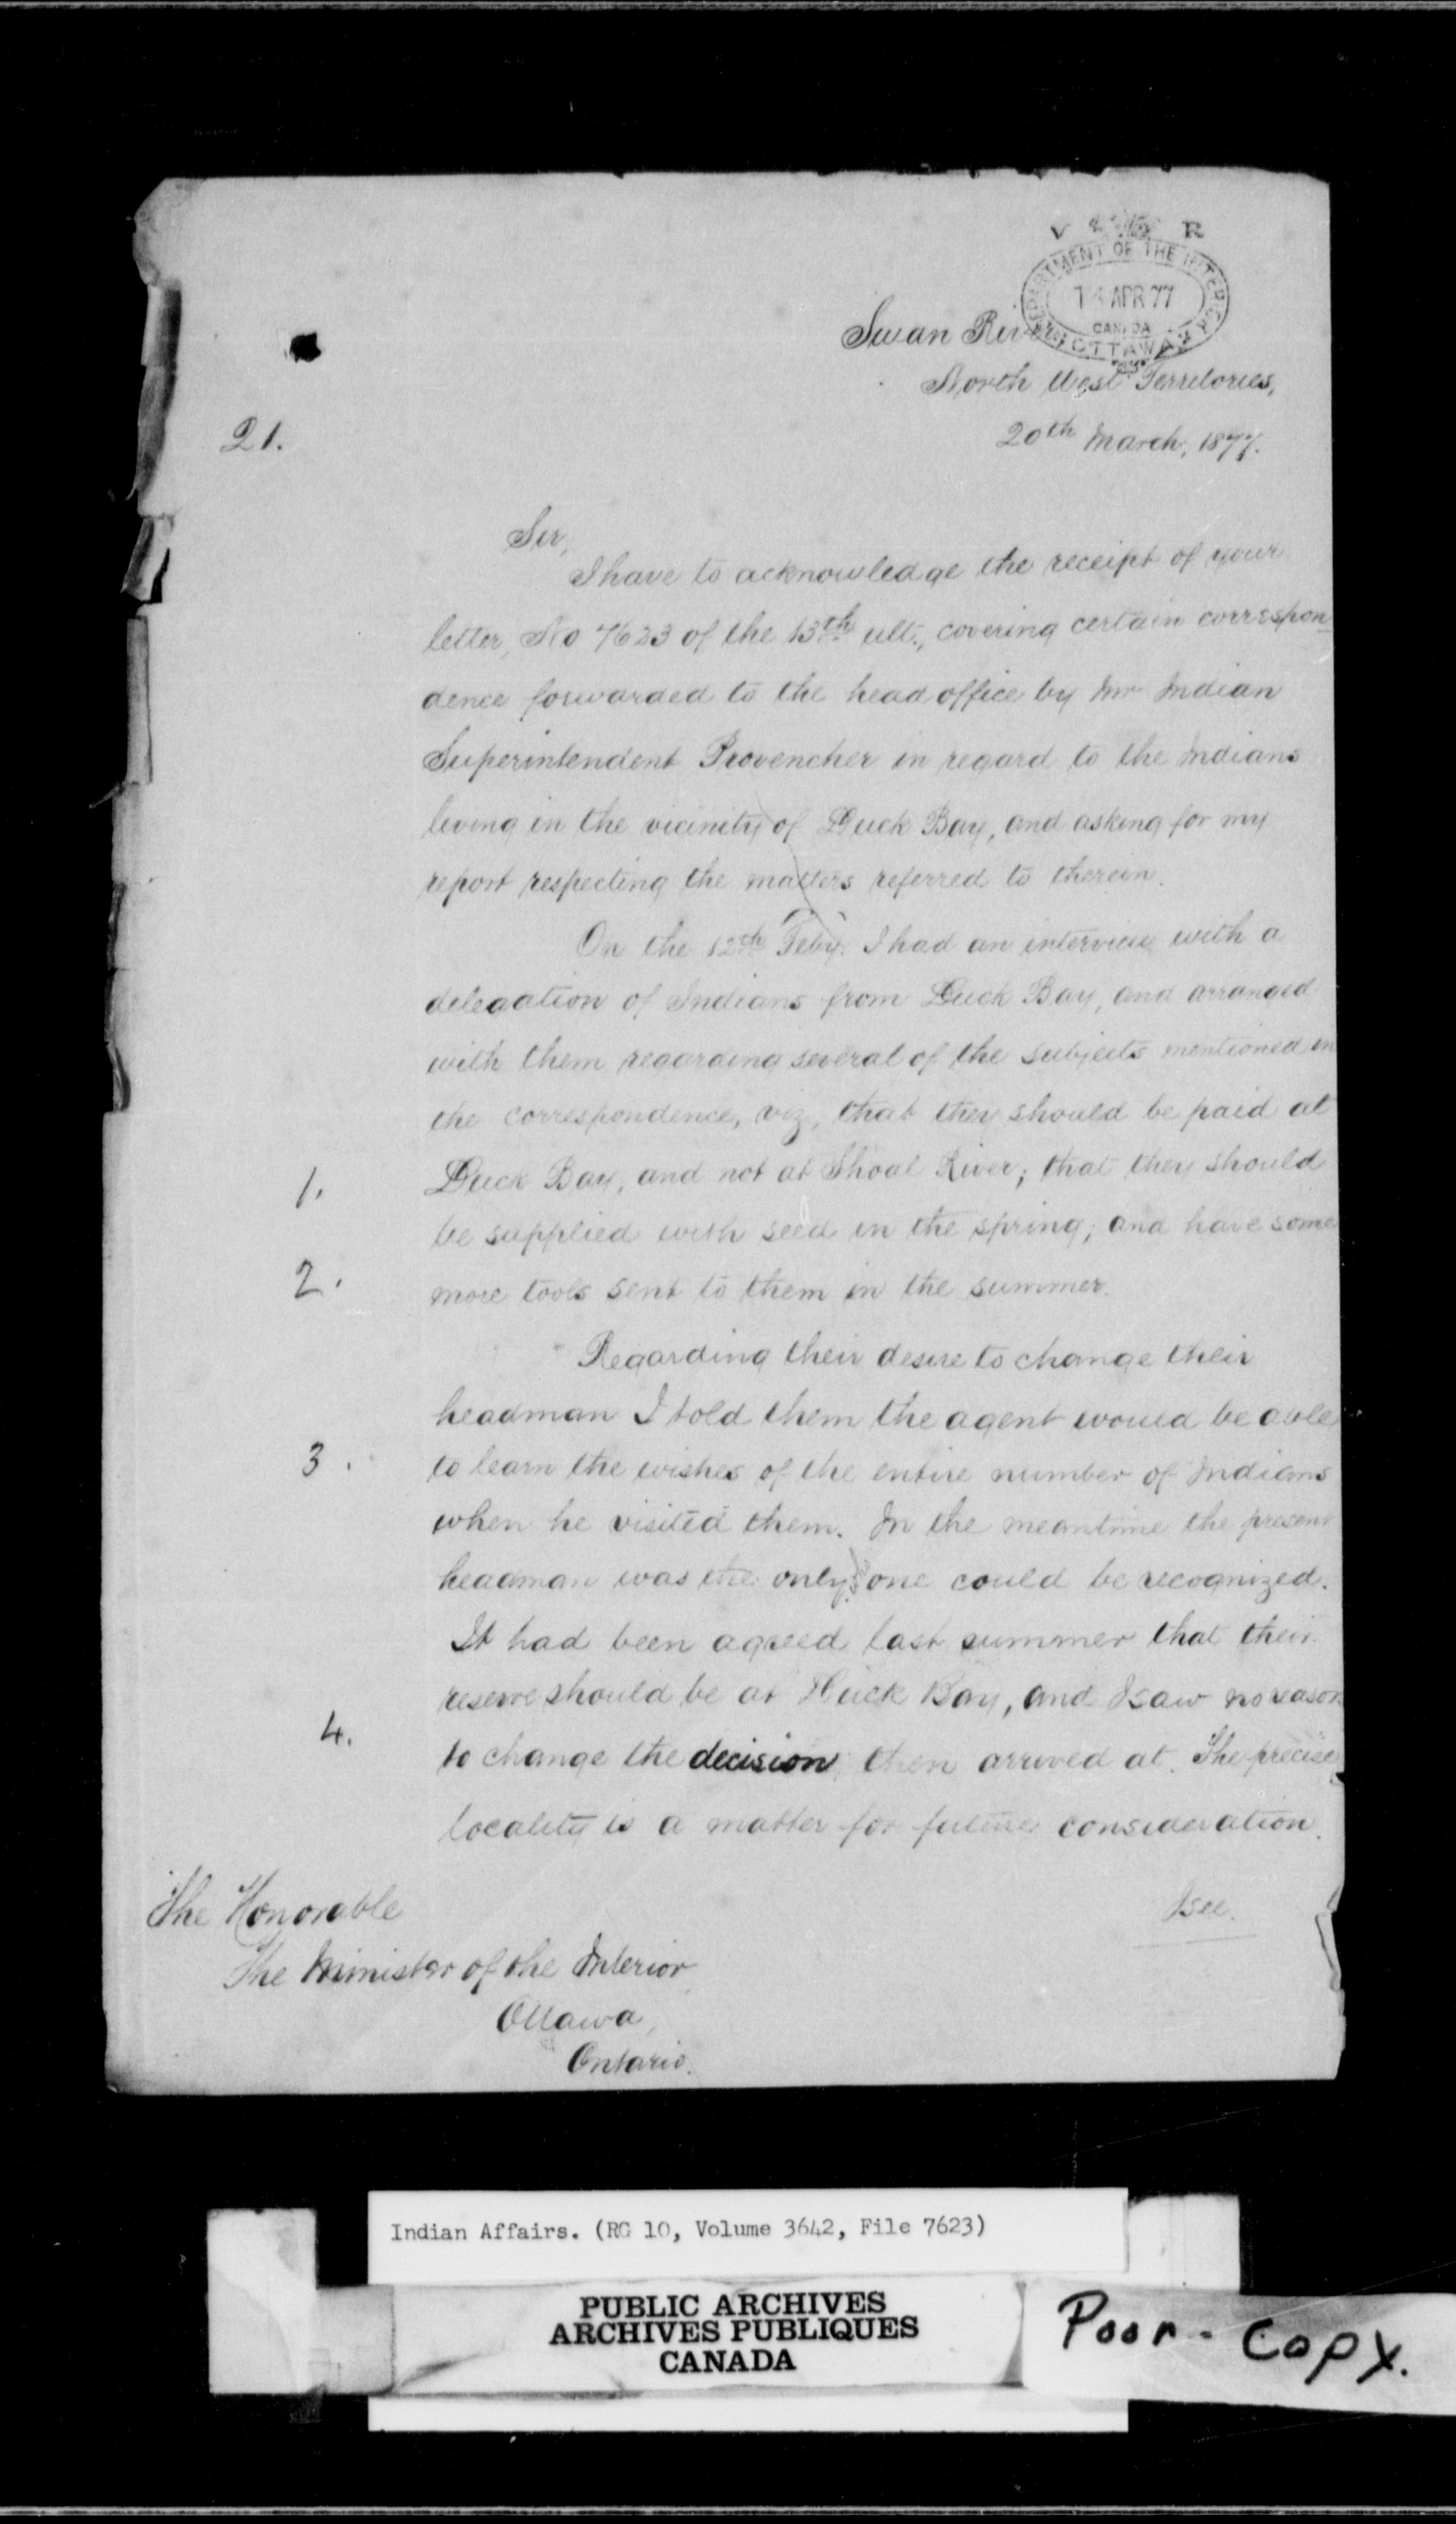 V R
DEPARTMENT OF THE INTERIOR
14 APR 77
CANADA
OTTAWA
Swan River
North West Territories,
20th March, 1877.
21.
Sir,
I have to acknowledge the receipt of your
letter, No 7623 of the 13th ult., covering certain correspon
dence forwarded to the head office by Mr Indian
Superintendent Provencher in regard to the Indians
living in the vicinity of Duck Bay, and asking for my
report respecting the matters referred to therein.
On the 12th Feby. I had an interview with a
delegation of Indians from Duck Bay, and arranged
with them regarding several of the subjects mentioned in
the correspondence, viz, that they should be paid at
1. Duck Bay, and not at Shoal River; that they should
be supplied with seed in the spring; and have some
2. more tools sent to them in the summer.
Regarding their desire to change their
headman I told them the agent would be able
3. to learn the wishes of the entire number of Indians
when he visited them. In the meantime the present
headman was the only one could be recognized.
It had been agreed last summer that their
reserve should be at Duck Bay, and I saw no reason
4. to change the decision then arrived at. The precise
locality is a matter for future consideration.
I see.
The Honorable
The Minister of the Interior,
Ottawa,
Ontario.
Indian Affairs. (RG 10, Volume 3642, File 7623)
PUBLIC ARCHIVES
ARCHIVES PUBLIQUES
CANADA
Poor - Copy.